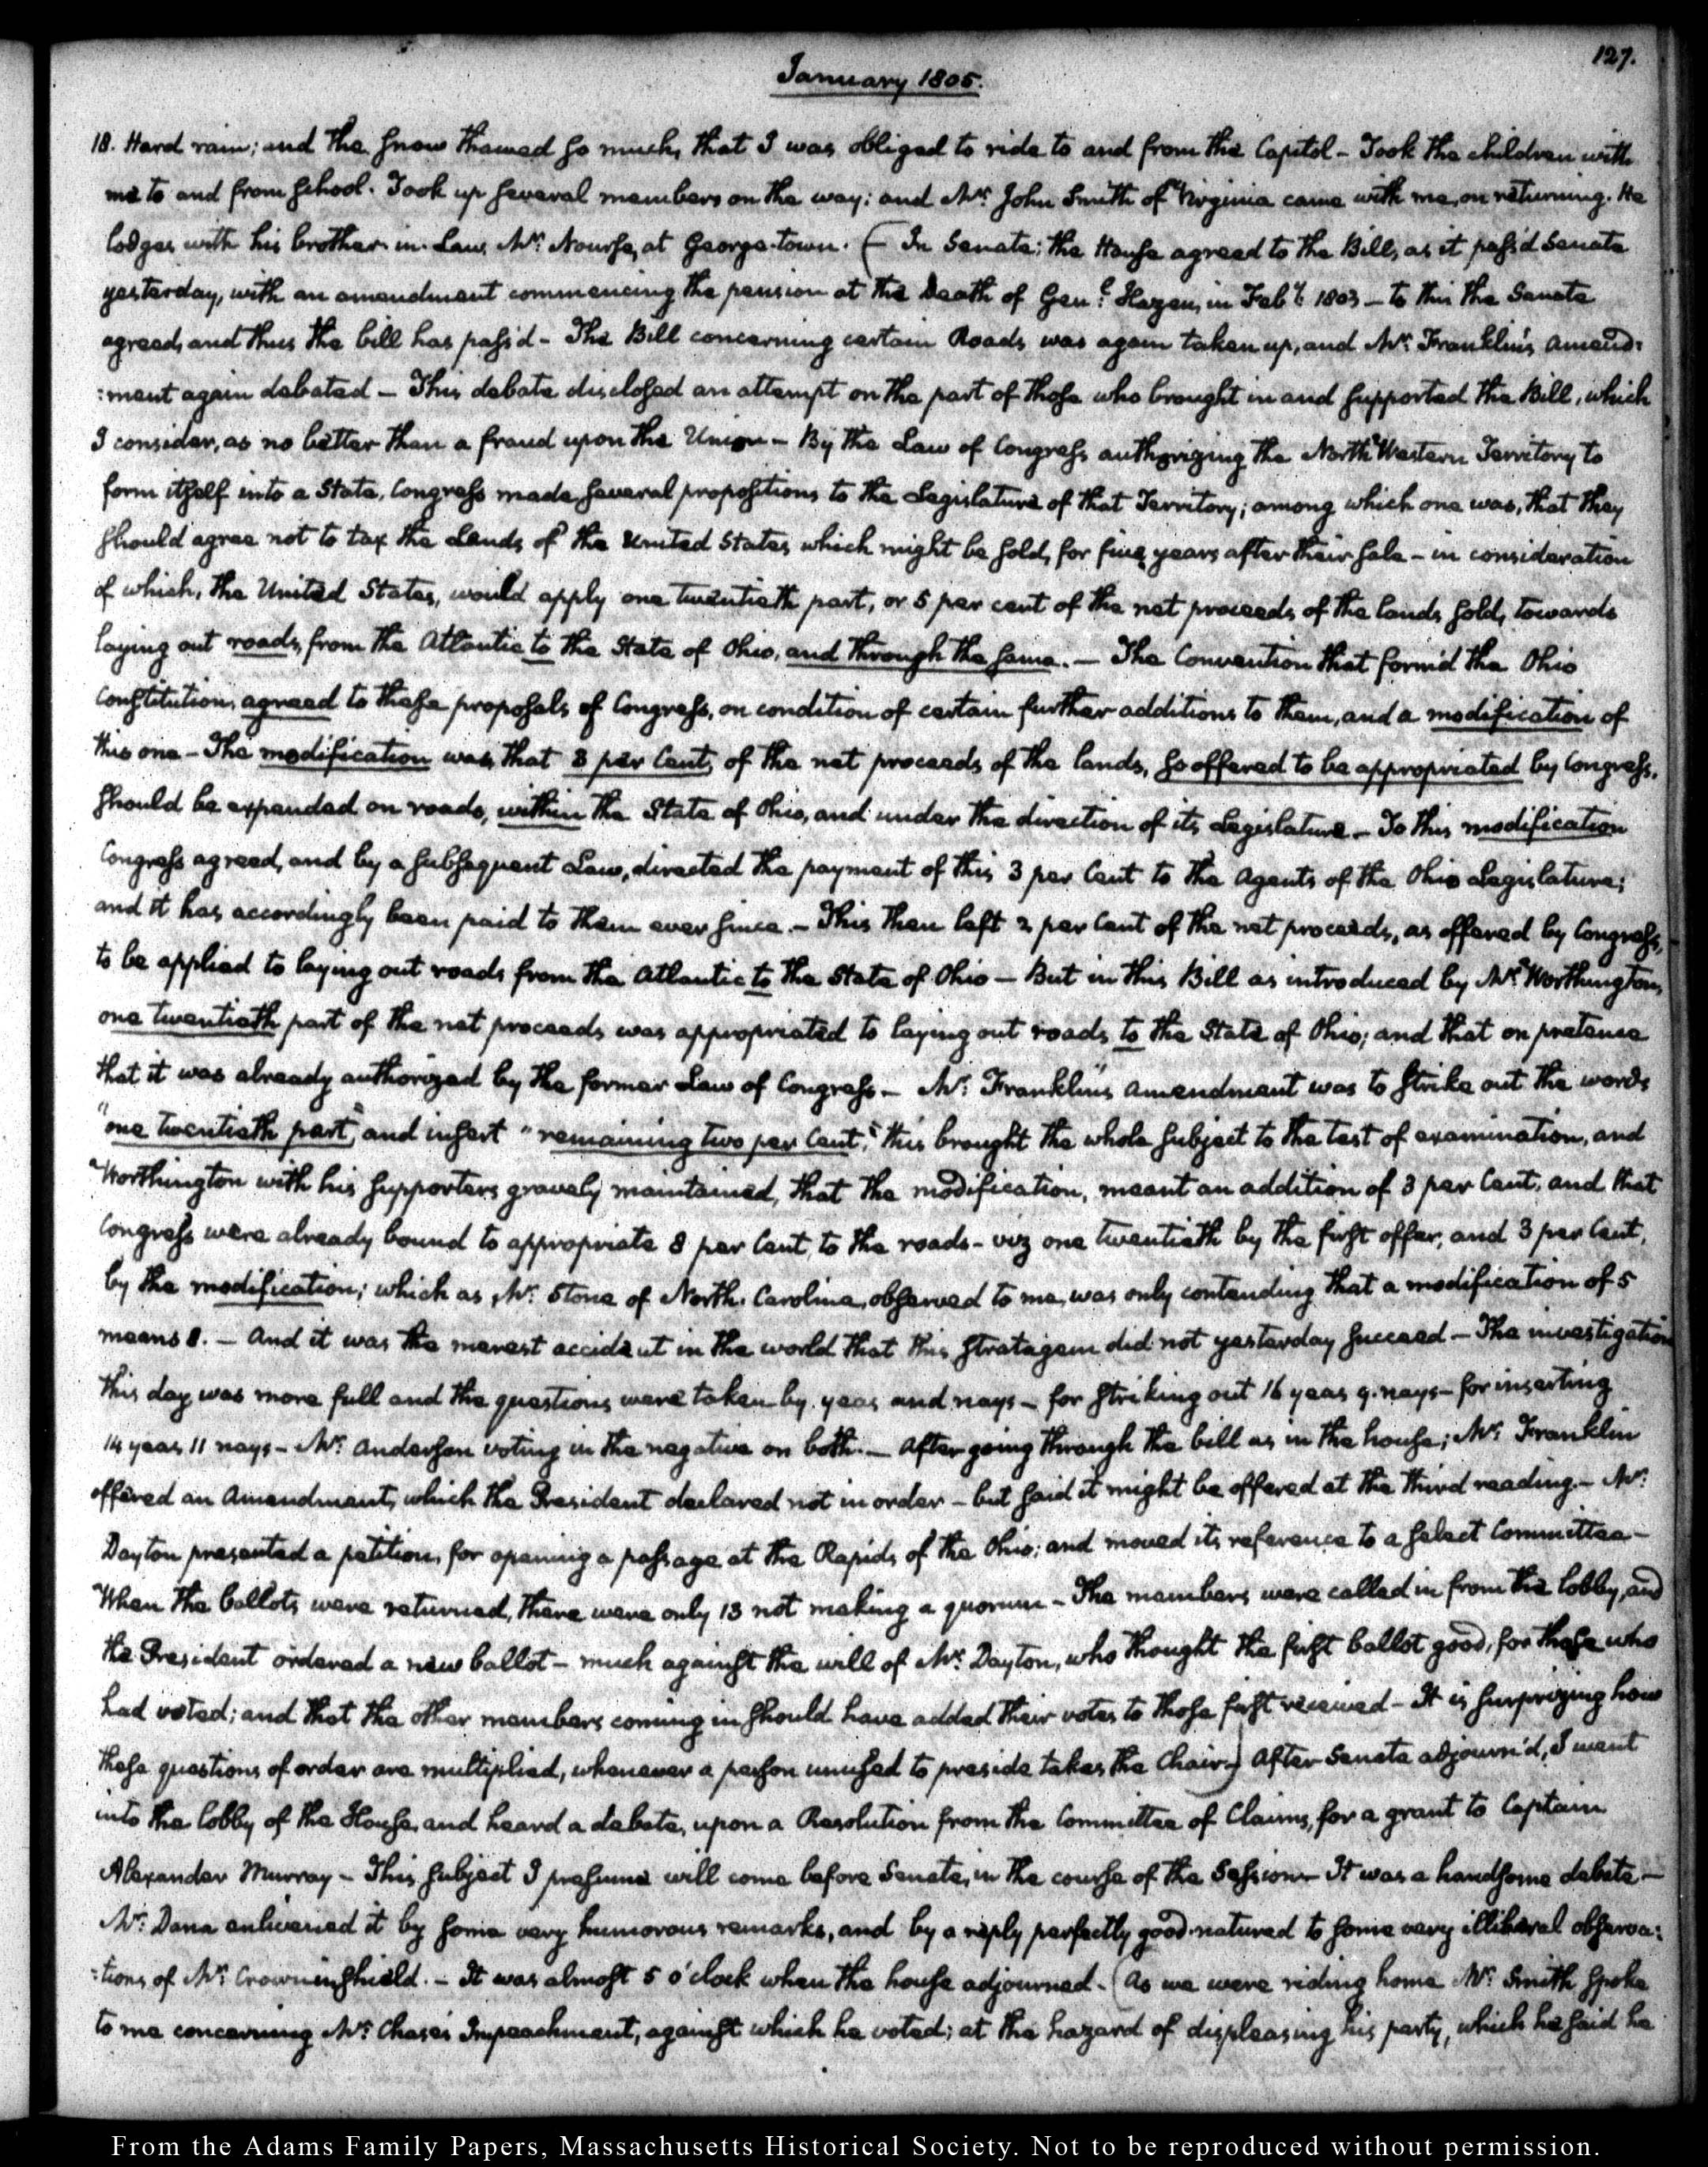 127.
January 1805.
18. Hard rain; and the snow thawed so much, that I was obliged to ride to and from the Capitol – Took the children with
me to and from school. Took up several members on the way; and Mr. John Smith of Virginia came with me, on returning. He
lodges with his brother-in-Law, Mr. Nourse, at George-town. ( In Senate; the House agreed to the Bill, as it pass'd Senate
yesterday, with an amendment commencing the pension at the Death of Genl. Hazen, in Feby. 1803 – to this the Senate
agreed, and thus the bill has pass'd – The Bill concerning certain Roads was again taken up, and Mr. Franklin's amend:
:ment again debated – This debate disclosed an attempt on the part of those who brought in and supported the Bill, which
I consider, as no better than a fraud upon the Union – By the Law of Congress authorizing the North Western Territory to
form itself into a State, Congress made several propositions to the Legislature of that Territory; among which one was, that they
should agree not to tax the Lands of the United States which might be sold, for five years after their sale – in consideration
of which, the United States, would apply one twentieth part, or 5 per cent of the net proceeds of the lands sold, towards
laying out roads, from the Atlantic to the State of Ohio, and through the same. – The Convention that form'd the Ohio
Constitution, agreed to these proposals of Congress, on condition of certain further additions to them, and a modification of
this one – The modification was, that 3 per Cent, of the net proceeds of the lands, so offered to be appropriated by Congress,
should be expended on roads, within the State of Ohio, and under the direction of its Legislature – To this modification
Congress agreed, and by a subsequent Law, directed the payment of this 3 per Cent to the Agents of the Ohio Legislature;
and it has accordingly been paid to them ever since. – This then left 2 per Cent of the net proceeds, as offered by Congress,
to be applied to laying out roads from the Atlantic to the State of Ohio – But in this Bill as introduced by Mr. Worthington,
one twentieth part of the net proceeds was appropriated to laying out roads to the State of Ohio; and that on pretence
that it was already authorized by the former Law of Congress – Mr. Franklin's amendment was to strike out the words
"one twentieth part", and insert "remaining two per Cent"; this brought the whole subject to the test of examination, and
Worthington with his supporters gravely maintained, that the modification, meant an addition of 3 per Cent, and that
Congress were already bound to appropriate 8 per Cent, to the roads – viz one twentieth by the first offer, and 3 per Cent,
by the modification; which as Mr. Stone of North. Carolina, observed to me, was only contending that a modification of 5
means 8. – And it was the merest accident in the world that this stratagem did not yesterday succeed – The investigation
this day was more full and the questions were taken by yeas and nays – for striking out 16 yeas 9. nays – for inserting
14 yeas, 11 nays – Mr. Anderson voting in the negative on both. – After going through the bill as in the house; Mr. Franklin
offered an Amendment, which the President declared not in order – but said it might be offered at the third reading. – Mr.
Dayton presented a petition, for opening a passage at the Rapids of the Ohio; and moved its reference to a select Committee –
When the ballots were returned, there were only 13 not making a quorum – The members were called in from the lobby, and
the President ordered a new ballot – much against the will of Mr. Dayton, who thought the first ballot good, for those who
had voted; and that the other members coming in should have added their votes to those first received – It is surprizing how
these questions of order are multiplied, whenever a person unused to preside takes the Chair –) After Senate adjourn'd, I went
into the lobby of the House, and heard a debate, upon a Resolution from the Committee of Claims, for a grant to Captain
Alexander Murray – This subject I presume will come before Senate, in the course of the Session – It was a handsome debate –
Mr. Dana enlivened it by some very humorous remarks, and by a reply perfectly good-natured to some very illiberal observa:
:tions of Mr. Crowninshield. – It was almost 5 o'clock when the house adjourned. (As we were riding home Mr. Smith spoke
to me concerning Mr. Chase's Impeachment, against which he voted; at the hazard of displeasing his party, which he said he
From the Adams Family Papers, Massachusetts Historical Society. Not to be reproduced without permission.